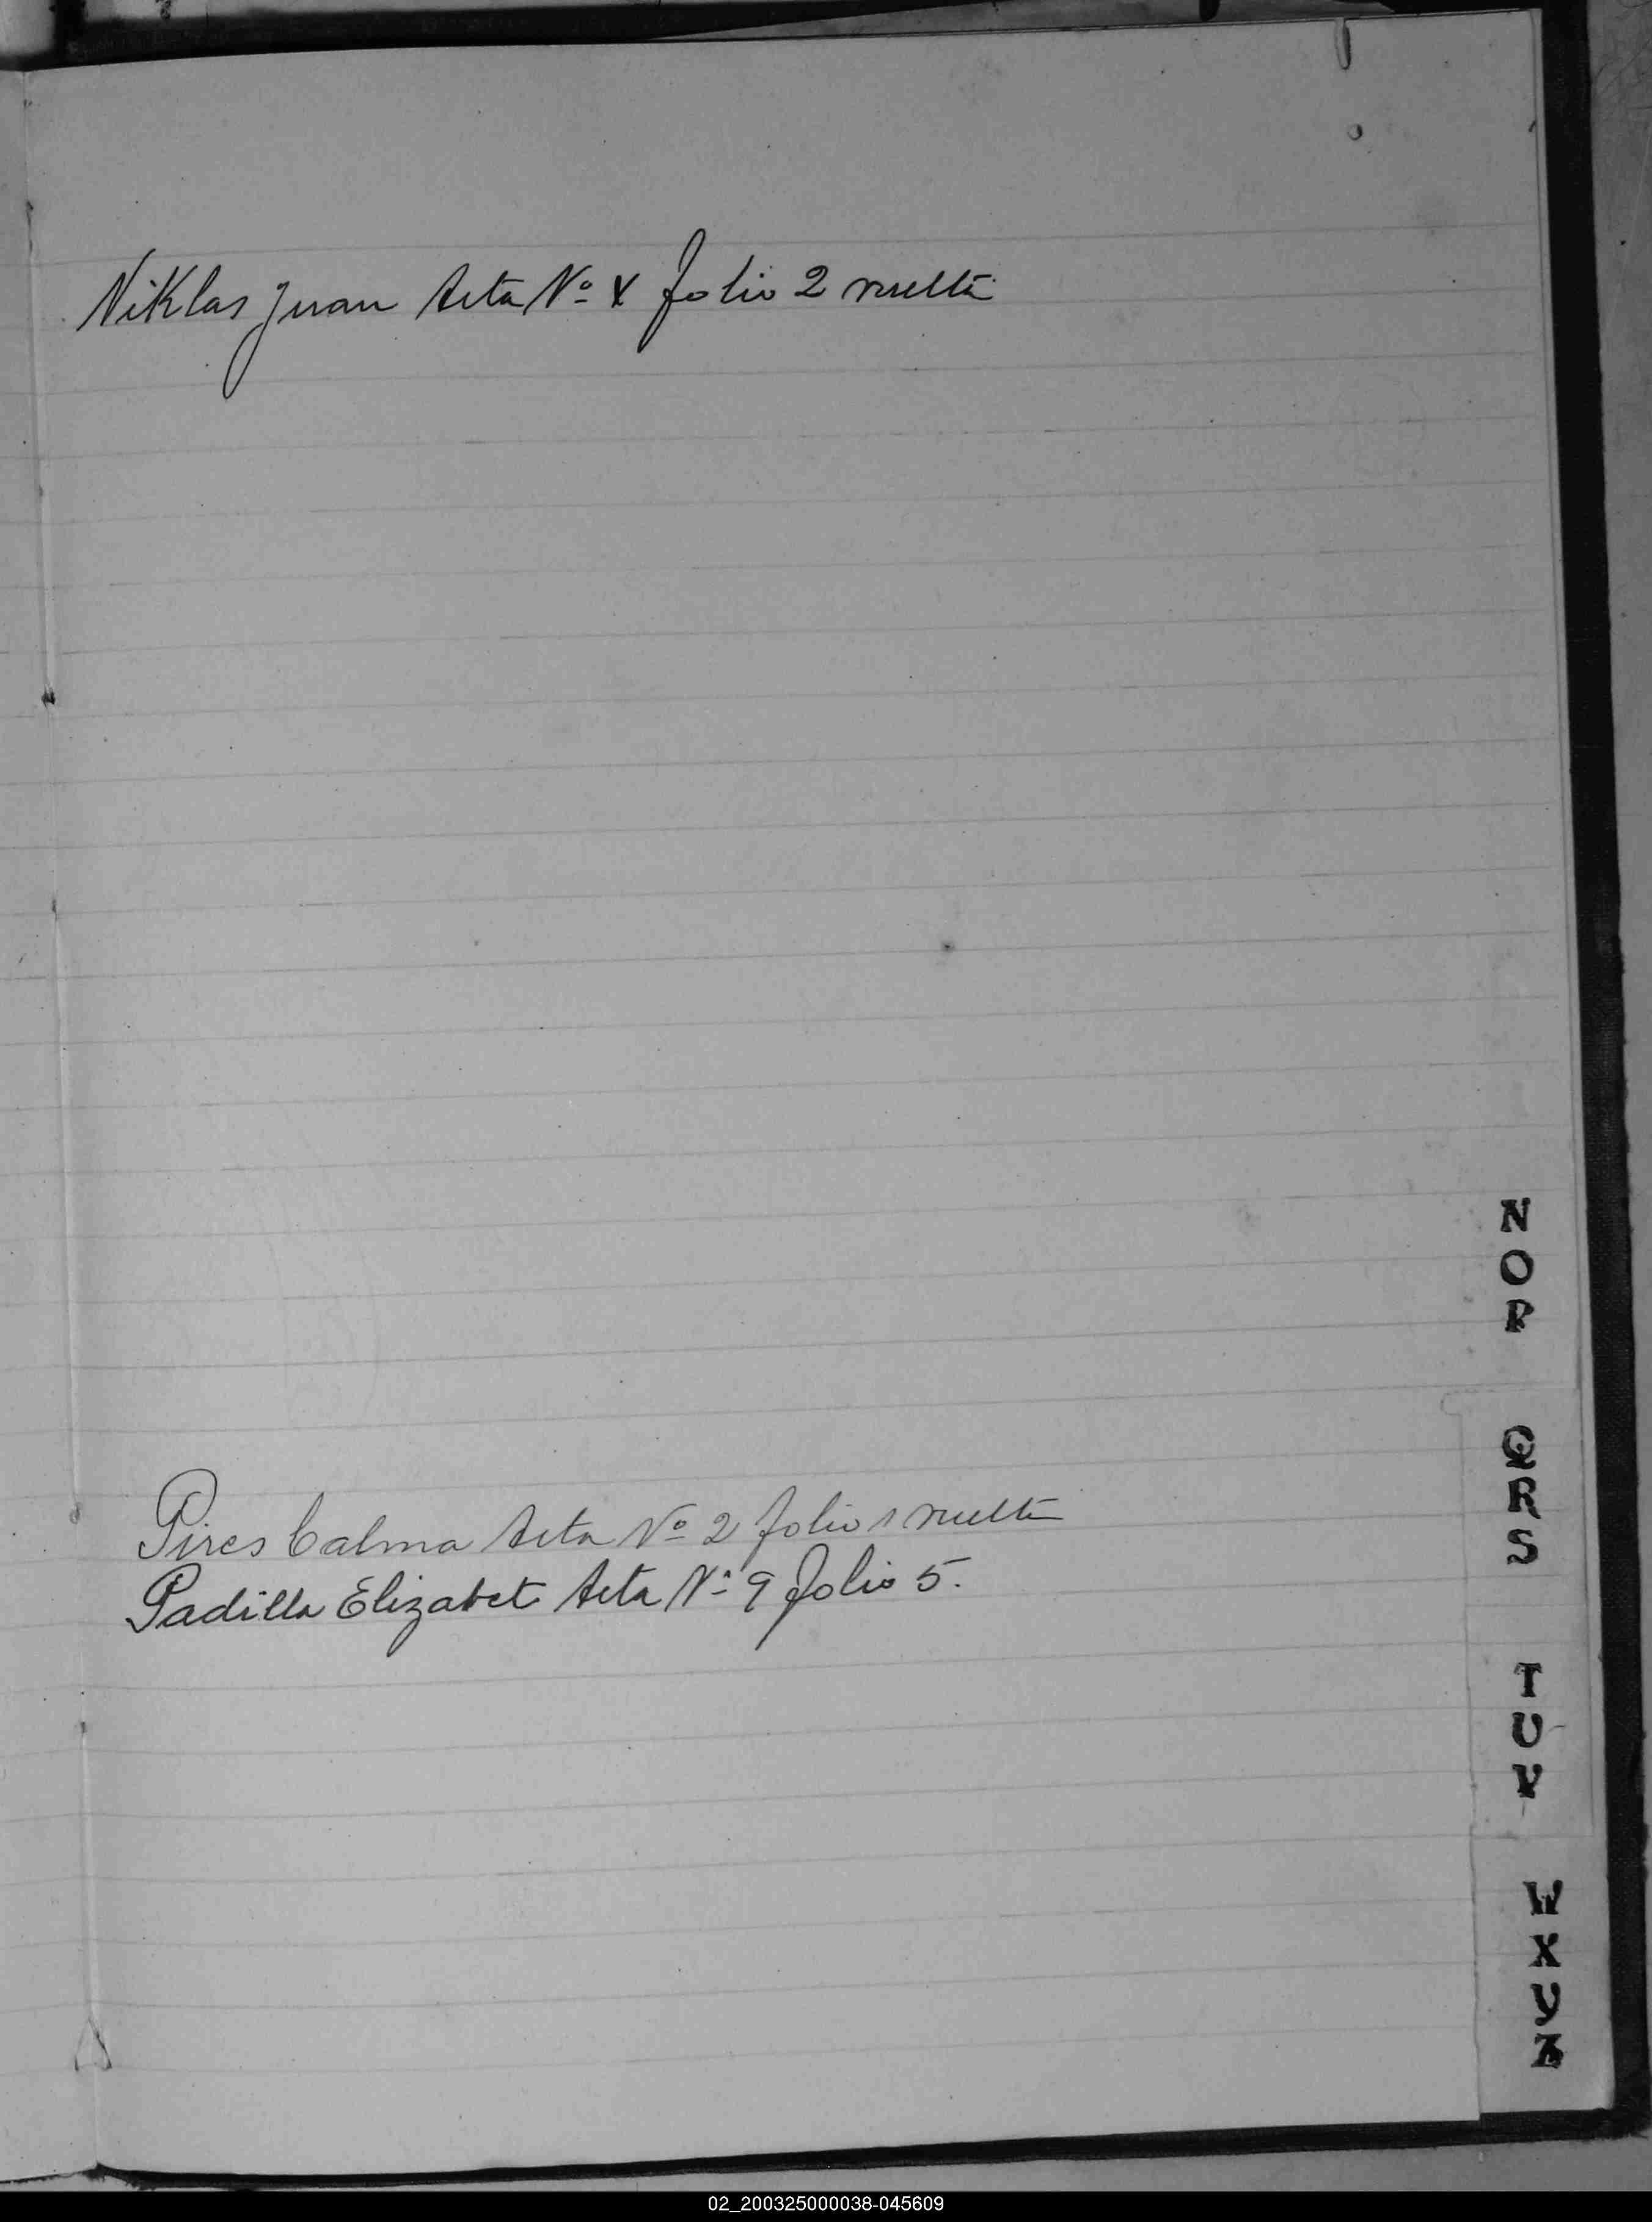 Niklas Juan Acta Nº 4 folio 2 vuelta
N
O
P
Q
R
S
Pires Calma Acta Nº 2 folio 1 vuelta
Padilla Elizabet Acta Nº 9 folio 5.
T
U
V
W
X
Y
Z
02_200325000038-045609